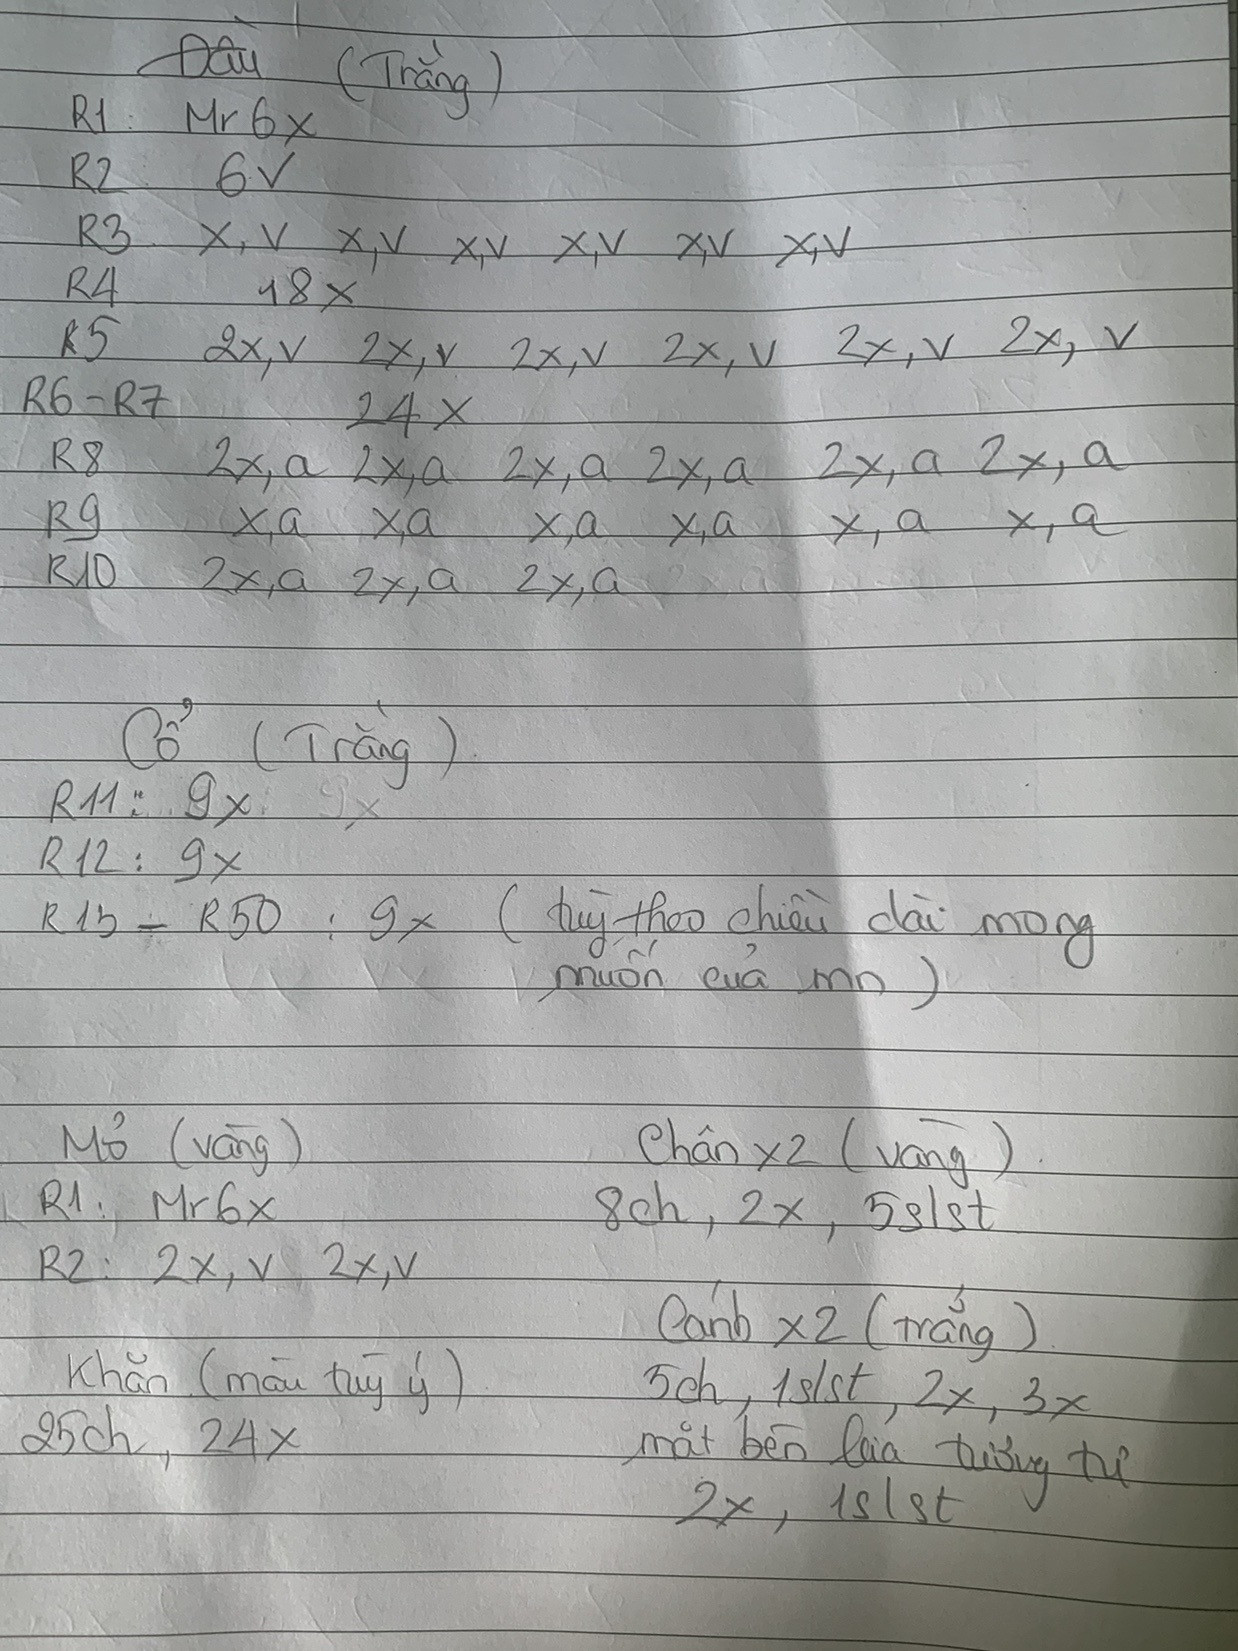 Đầu (Trắng)
R1: Mr 6x
R2 6V
R3 x,v x,v x,v x,v x,v x,v
R4 18x
R5 2x,v 2x,v 2x,v 2x,v 2x,v 2x,v
R6-R7 24x
R8 2x,a 2x,a 2x,a 2x,a 2x,a 2x,a
R9 x,a x,a x,a x,a x,a x,a
R10 2x,a 2x,a 2x,a
Cổ (Trắng).
R11: 9x
R12: 9x
R13 - R50 : 9x ( tuỳ theo chiều dài mong
muốn của mn )
Mỏ (vàng)
R1: Mr6x
R2: 2x,v 2x,v
Khăn (màu tuỳ ý)
25ch, 24x
Chân x2 (vàng).
8ch, 2x, 5slst
Cánh x2 (trắng)
5ch, 1slst, 2x, 3x
mắt bên kia tương tự
2x, 1slst